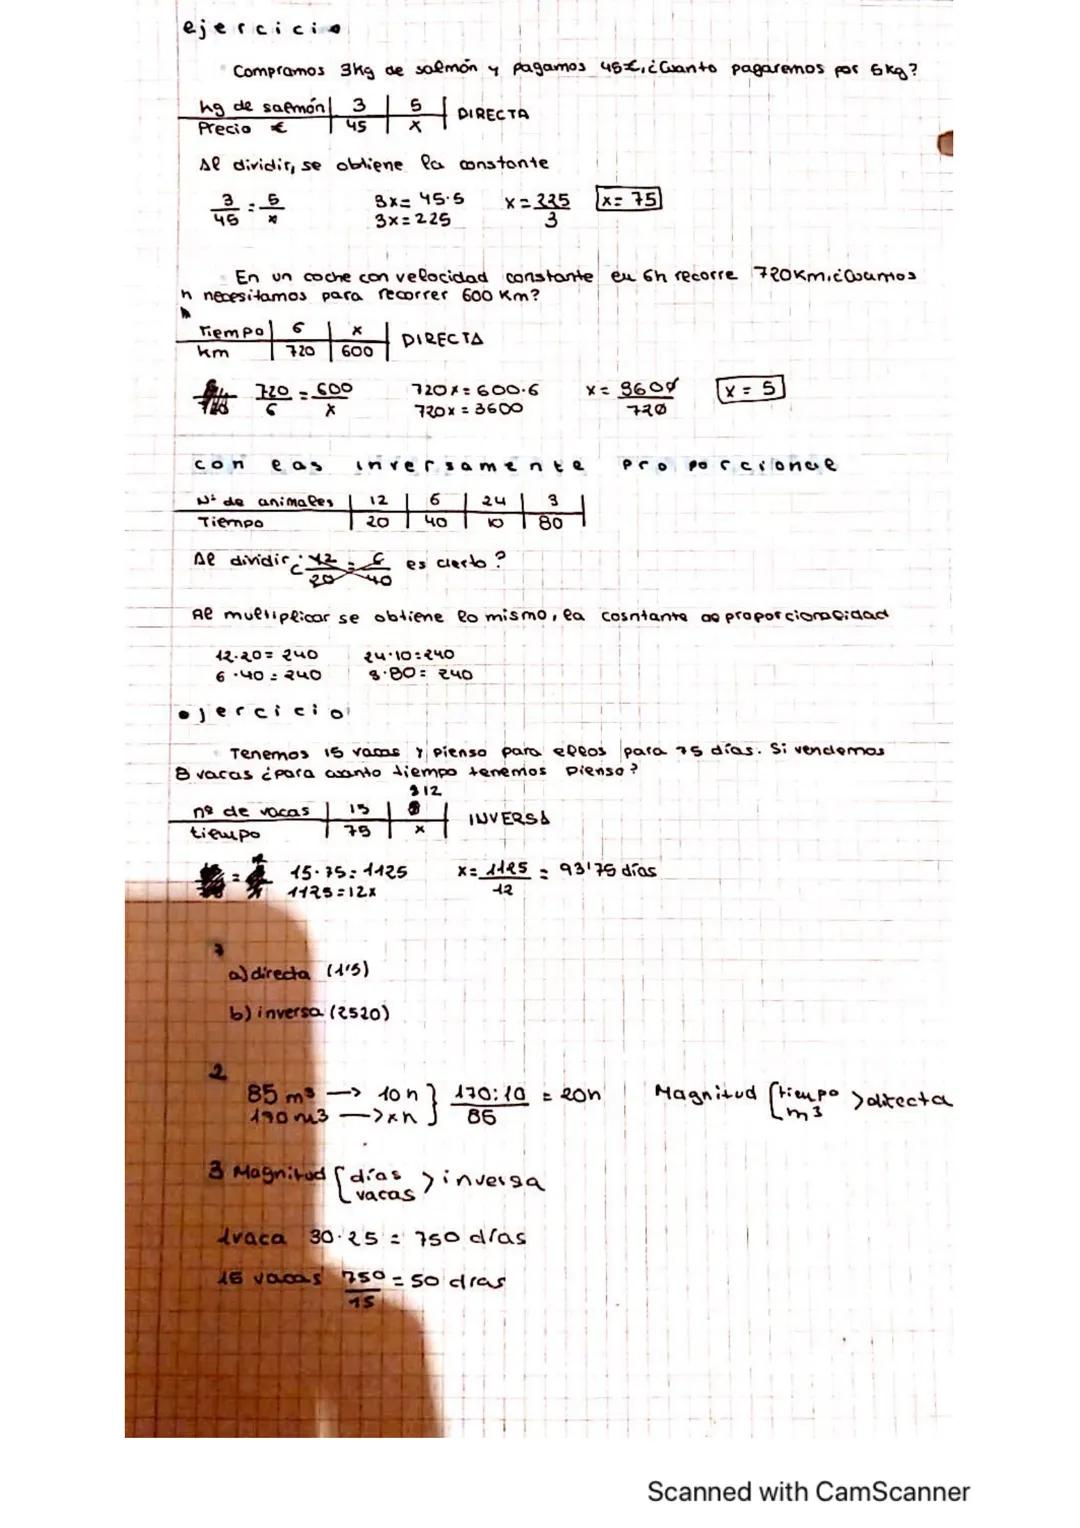 ejercicio
Compramos 3kg de salmón y pagamos 45€, ¿Cuanto pagaremos por 5kg?
kg de salmón | 3 | 5 | DIRECTA
Precio € | 45 | x |
Al dividir, se obtiene la constante
3/45 = 5/x 3x= 45·5 x= 225/3 x= 75
3x= 225
En un coche con velocidad constante en 6h recorre 720Km, ¿Cuantos
h necesitamos para recorrer 600 Km?
Tiempo | 6 | x | DIRECTA
km | 720 | 600 |
720/6 = 600/x 720x = 600·6 x= 3600/720 x = 5
720x = 3600
con las inversamente proporcional
Nº de animales | 12 | 6 | 24 | 3 |
Tiempo | 20 | 40 | 10 | 80 |
Al dividir ¿ 12/20 = 6/40 es cierto?
Al multiplicar se obtiene lo mismo, la cosntante de proporcionalidad
12·20= 240 24·10=240
6·40= 240 3·80= 240
ejercicio
Tenemos 15 vacas y pienso para ellos para 75 días. Si vendemos
8 vacas ¿para cuanto tiempo tenemos pienso?
312
nº de vacas | 15 | | INVERSA
tiempo | 75 | x |
15·75= 1125 x= 1125/12 = 93'75 días
1125=12x
a) directa (1'5)
b) inversa (2520)
2
85 m3 → 10 h } 170·10/85 = 20h Magnitud [ tiempo m3 > directa
170 m3 → x h
3 Magnitud [ días vacas > inversa
1 vaca 30·25 = 750 días
15 vacas 750/15 = 50 días
Scanned with CamScanner